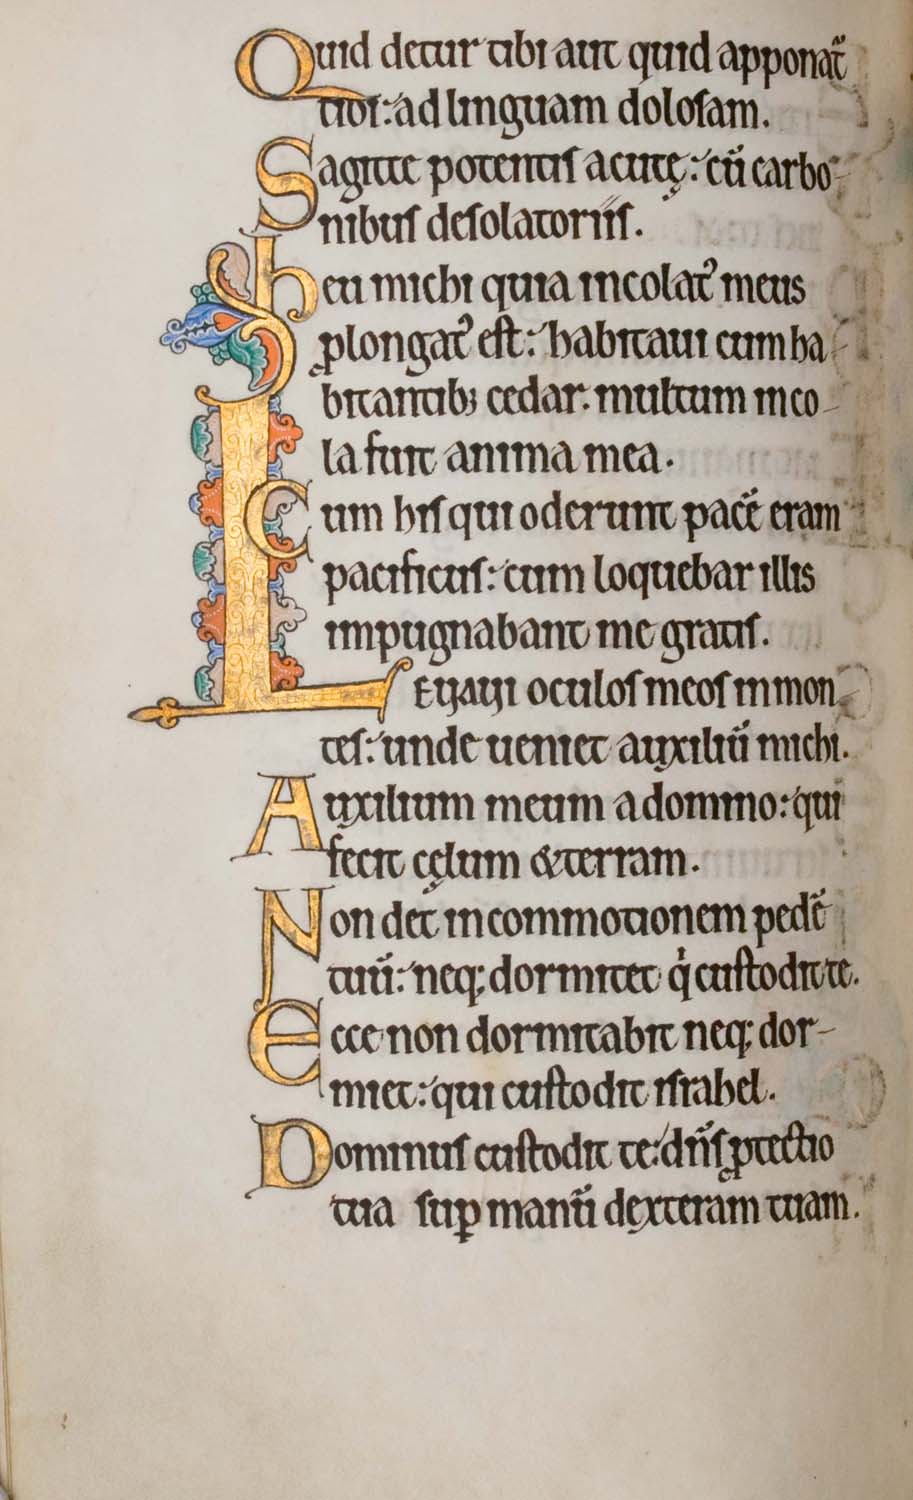 Quid detur tibi aut quid apponat᷑
tibi: ad linguam dolosam.
Sagitte potentis acutę: cū carbo-
nibus desolatoriis.
heu michi quia incolat᾿ meus
ꝓlongat᾿ est: habitaui cum ha-
bitantibꝫ cedar. multum inco-
la fuit anima mea.
Cum his qui oderunt pacē eram
pacificus: cum loquebar illis
impugnabant me gratis.
LEUAUI oculos meos in mon-
tes: unde ueniet auxiliū michi.
Auxilium meum a domino: qui
fecit cęlum &terram.
Non det in commotionem pedē
tuū: neq; dormitet qͥ custodit te.
Ecce non dormitabit neq; dor-
miet: qui custodit israhel.
Dominus custodit te: dn̄s ꝓtectio
tua sup̱ manū dexteram tuam.